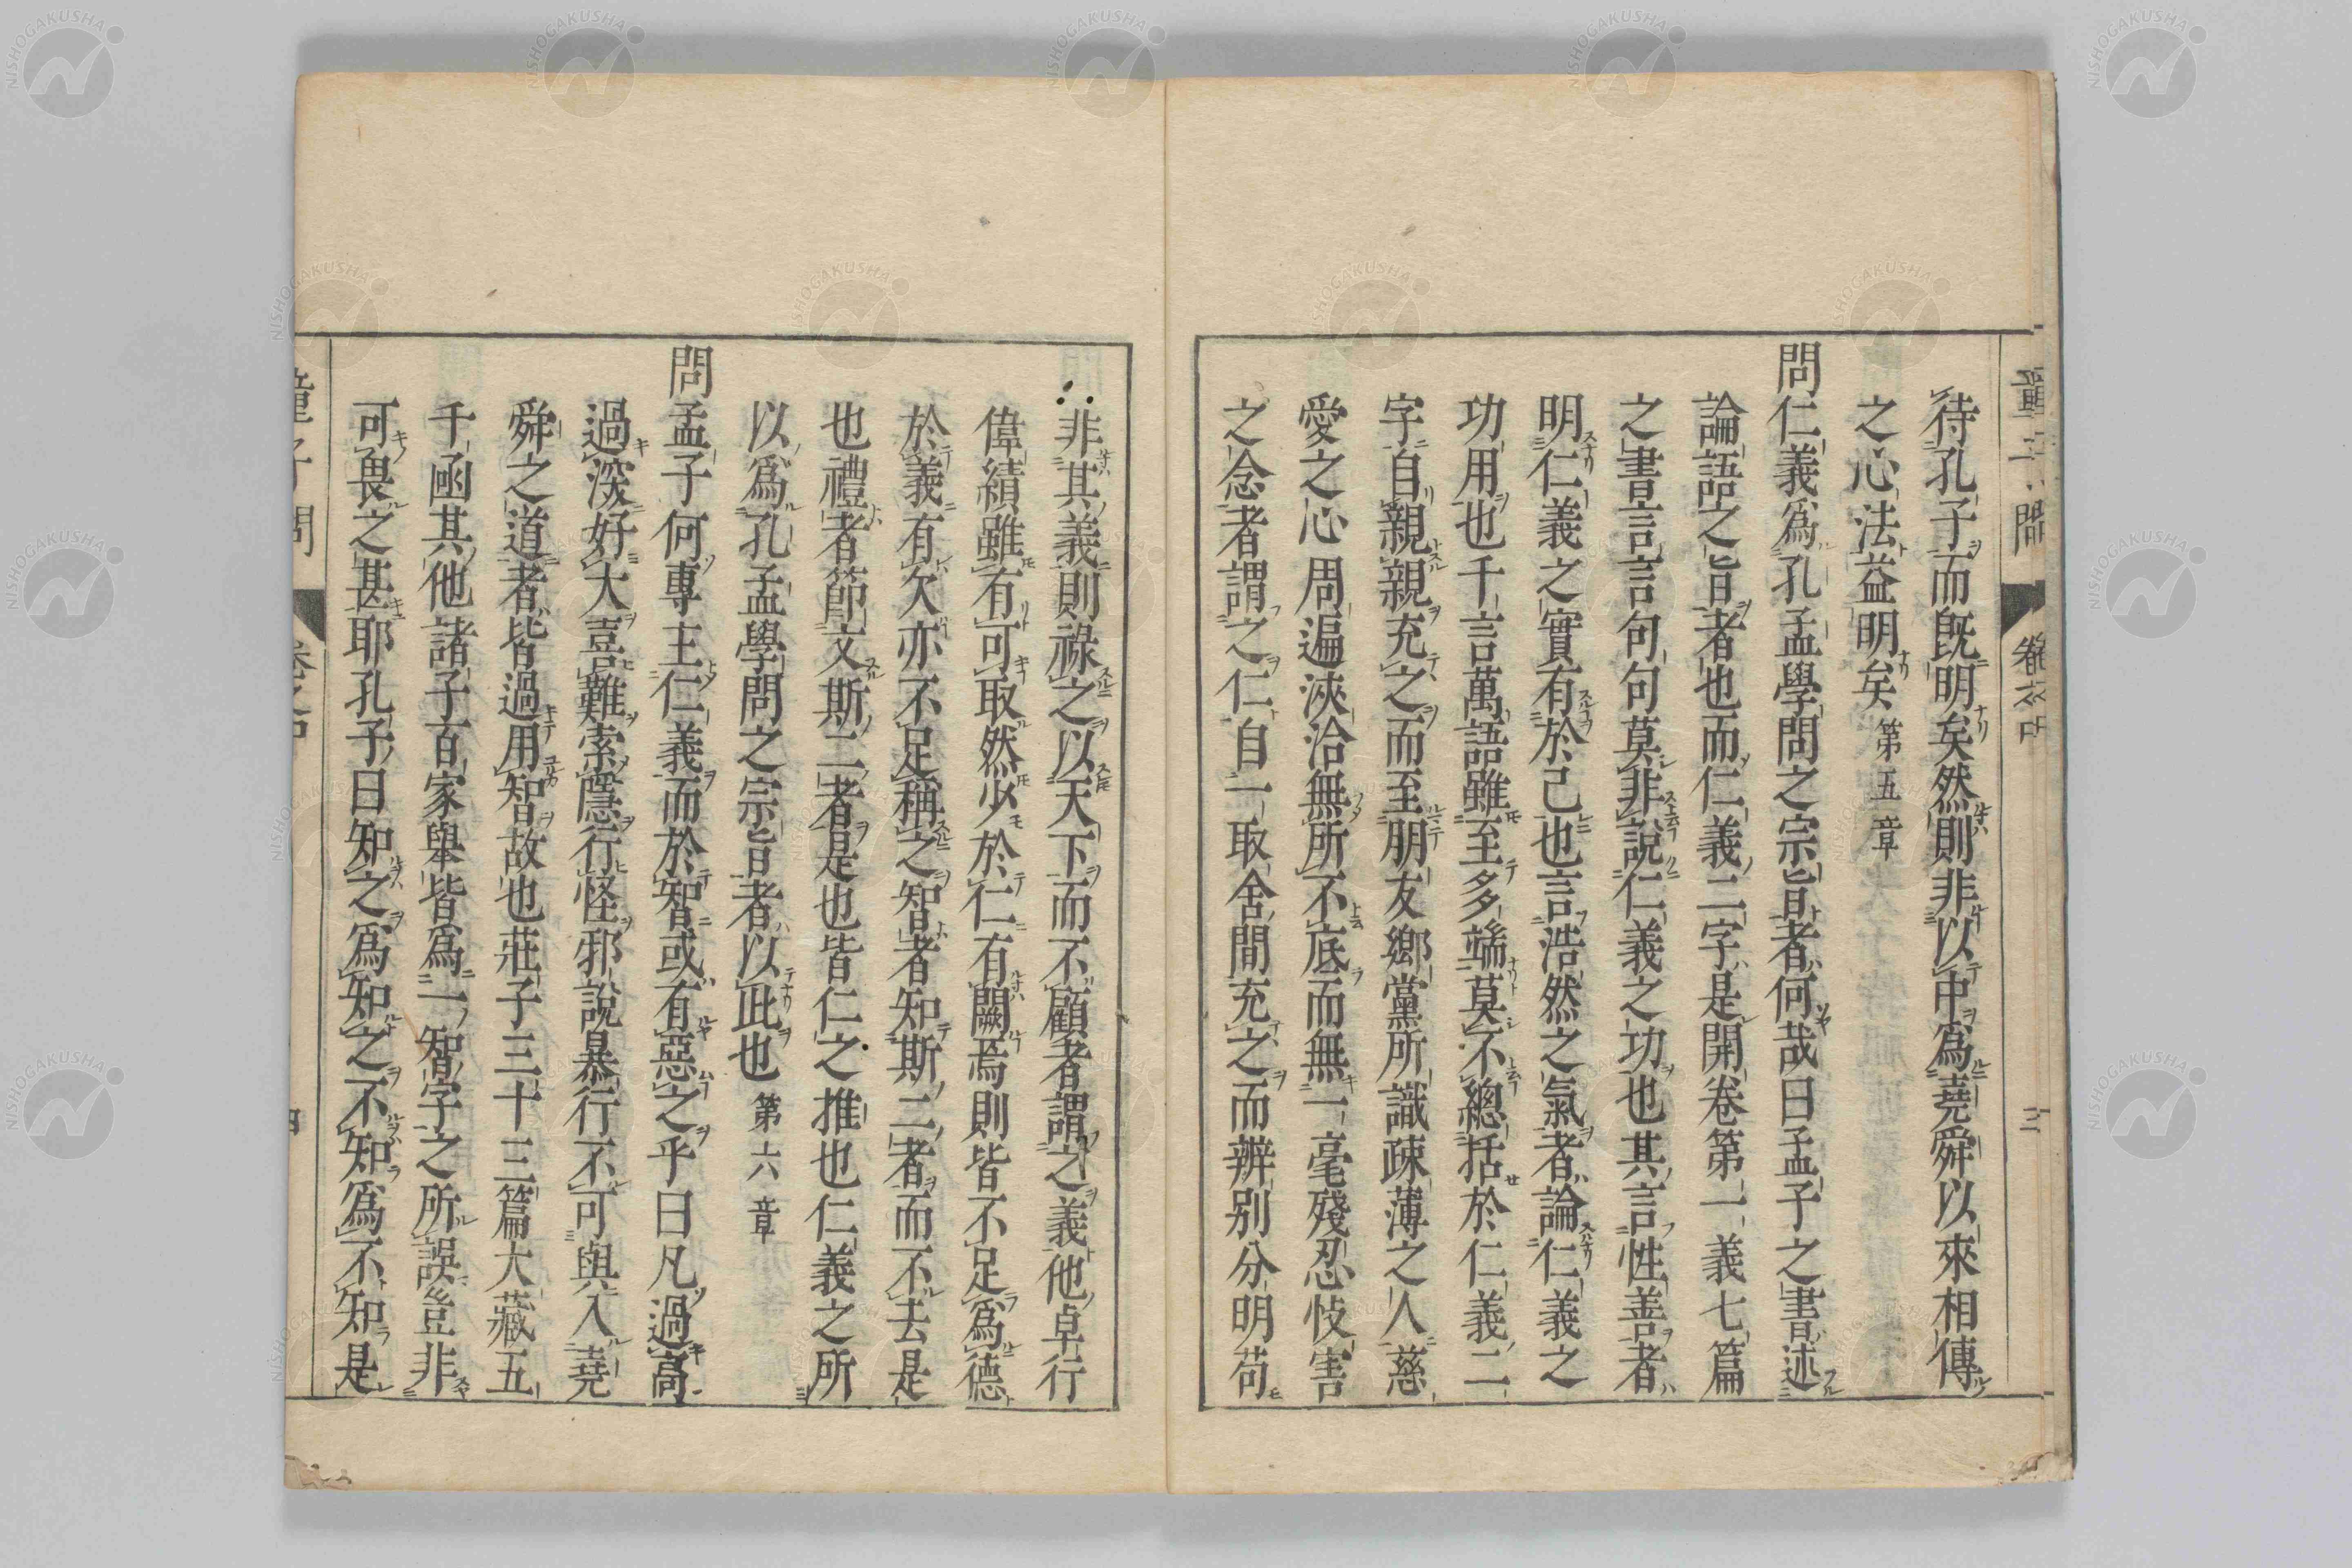 待孔子而既明矣然則非以中為堯舜以來相傳
之心法益明矣 第五章
問仁義為孔孟學問之宗旨者何哉曰孟子之書述
論語之旨者也而仁義二字是開卷第一義七篇
之書言言句句莫非說仁義之功也其言性善者
明仁義之實有於己也言浩然之氣者論仁義之
功用也千言萬語雖至多端莫不總括於仁義二
字自親親充之而至朋友鄉黨所識疎薄之人慈
愛之心周遍浹洽無所不底而無一毫殘忍忮害
之念者謂之仁自一取舍間充之而辨別分明苟
非其義則祿之以天下而不顧者謂之義他卓行
偉績雖有可取然少於仁有闕焉則皆不足為德
於義有欠亦不足稱之智者知斯二者而不去是
也禮者節文斯二者是也皆仁之推也仁義之所
以為孔孟學問之宗旨者以此也 第六章
問孟子何專主仁義而於智或有惡之乎曰凡過高
過深好大喜難索隱行怪邪說暴行不可與入堯
舜之道者皆過用智故也莊子三十三篇大藏五
千函其他諸子百家舉皆為一智字之所誤豈非
可畏之甚耶孔子曰知之為知之不知為不知是
童子問 卷之中 三
童子問 卷之中 四
NISHOGAKUSHA